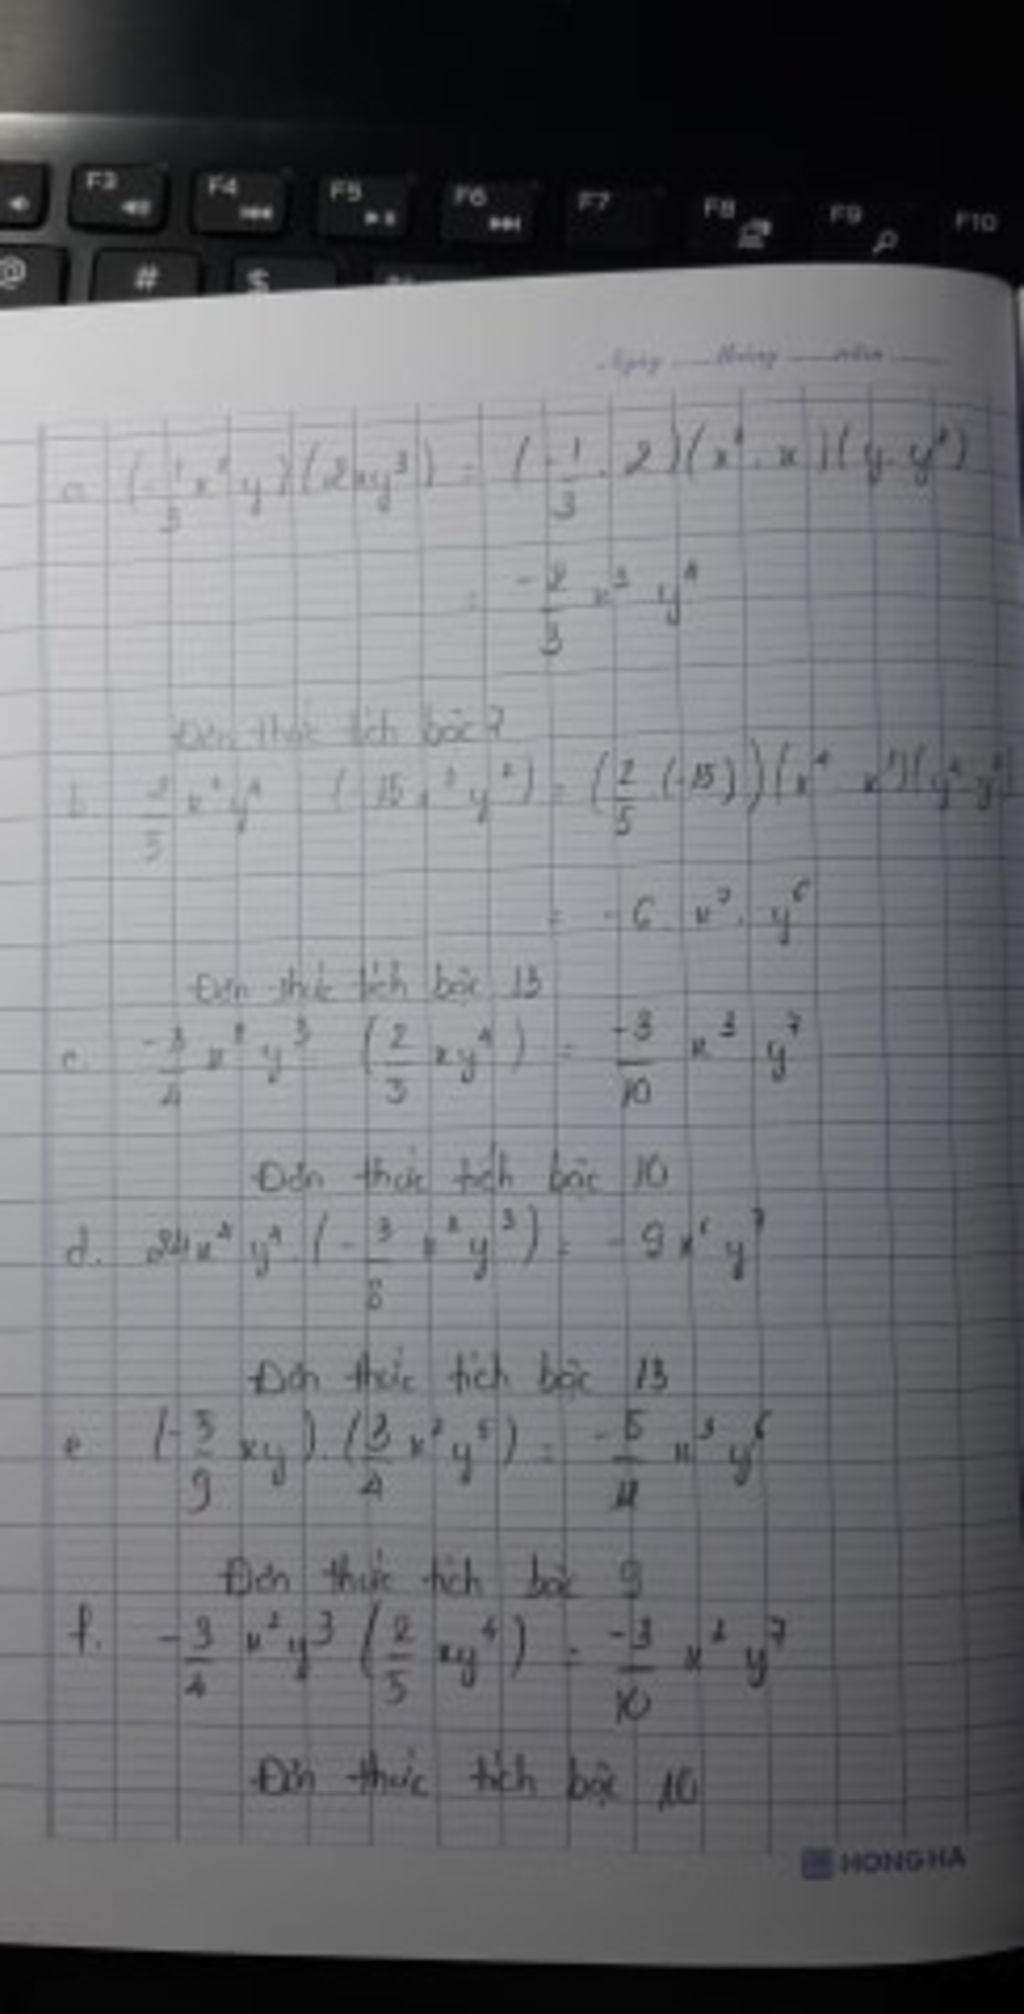 F3 F4 F5 F6 F7 F8 F9 F10
@ # $
Ngày tháng năm
a. (-1/3 x² y)(2xy³) = (-1/3 . 2)(x² . x)(y . y³)
= -2/3 x³ y⁴
Đơn thức tích bậc 7
b. 2/5 x⁴ y⁴ (-15 x³ y²) = (2/5 (-15))(x⁴ x³)(y⁴ y²)
= -6 x⁷ . y⁶
Đơn thức tích bậc 13
c. -3/4 x² y³ (2/3 xy⁴) = -3/10 x³ y⁷
Đơn thức tích bậc 10
d. 24x⁴ y⁴ . (-3/8 x² y³) = -9 x⁶ y⁷
Đơn thức tích bậc 13
e (-5/9 xy) . (3/4 x² y⁵) = -5/ x³ y⁶
Đơn thức tích bậc 9
f. -3/4 x² y³ (2/5 xy⁴) = -3/10 x³ y⁷
Đơn thức tích bậc 10
HONG HA